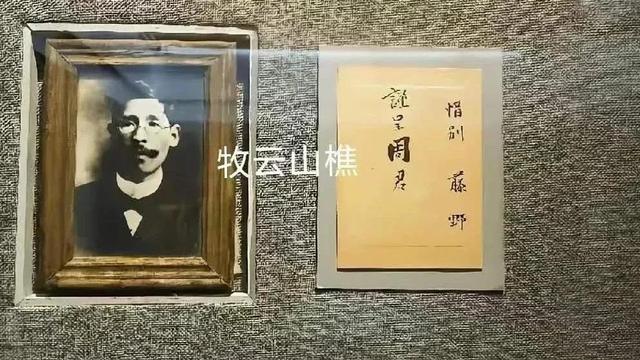 惜别 藤野
謹呈周君
牧云山樵